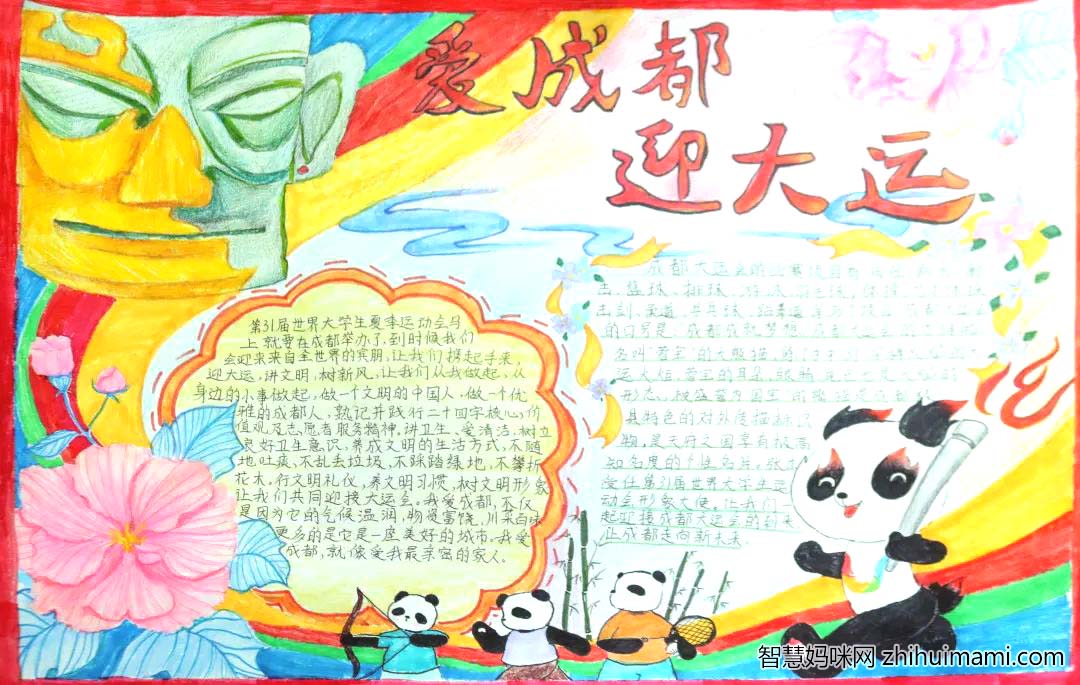 爱成都
迎大运
第31届世界大学生夏季运动会马
上就要在成都举办了,到时候我们
会迎来来自全世界的宾朋,让我们携起手来,
迎大运,讲文明,树新风,让我们从我做起,从
身边的小事做起,做一个文明的中国人,做一个优
雅的成都人,熟记并践行二十四字核心价
值观及志愿者服务精神,讲卫生、爱清洁,树立
良好卫生意识,养成文明的生活方式,不随
地吐痰,不乱丢垃圾,不踩踏绿地,不攀折
花木,行文明礼仪,养文明习惯,树文明形象
让我们共同迎接大运会。我爱成都,不仅
是因为它的气候温润,物产富饶,川菜
更多的是它是一座美好的城市。我爱
成都,就像爱我最亲密的家人。
成都大运会的比赛项目有
击,篮球,排球,游泳,羽毛球,体操,
击剑,柔道,乒乓球,
的口号是,成都成就梦想,
名叫"蓉宝"的大熊猫,
运火炬,蓉宝的耳朵,眼睛,尾巴
形态,被盛誉为"国宝"的
具特色的对外度描标识
物,是天府之国享有极高
知名度的个性名片。
爱任第31届世界大学生运
动会形象大使。让我们一
起迎接成都大运会的到来
让成都走向新未来
智慧妈咪网 zhihuimami.com